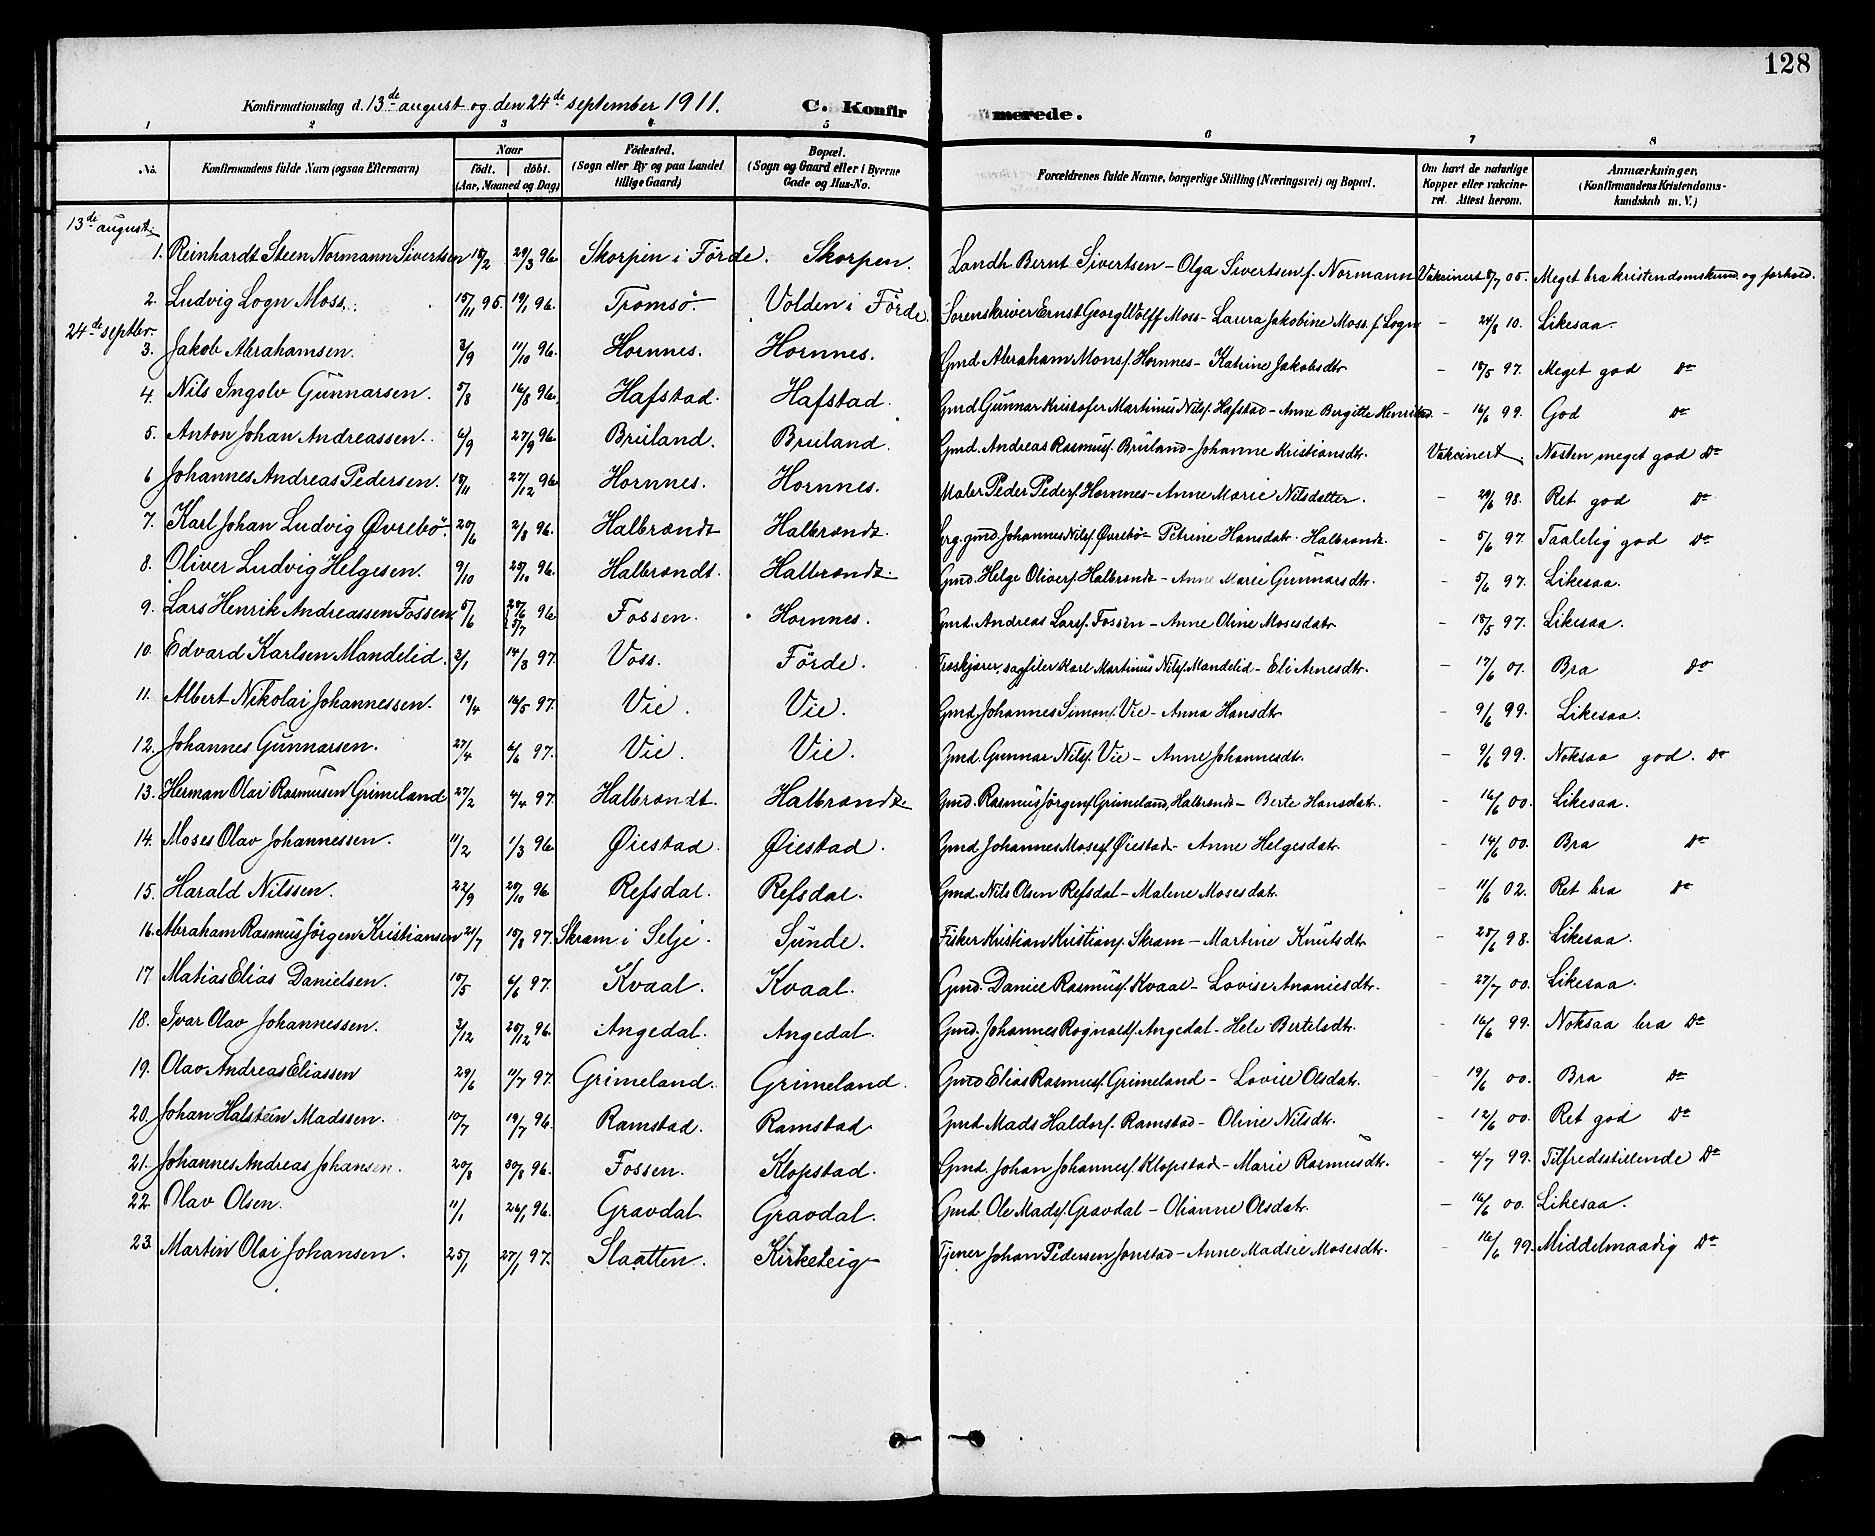 128
Konfirmationsdag d. 13de august og den 24de september 1911. C. Konfirmerede.
1 2 3 4 5 6 7 8
No. Konfirmandens fulde Navn (ogsaa Efternavn) Naar født. døbt. (Aar, Maaned og Dag) Födested. (Sogn eller By og paa Landet tillige Gaard) Bopæl. (Sogn og Gaard eller i Byerne Gade og Hus-No. Forældrenes fulde Navne, borgerlige Stilling (Næringsvei) og Bopæl. Om havt de naturlige Kopper eller vakcineret. Attest herom. Anmærkninger. (Konfirmandens Kristendomskundskab m. V.)
13de august.
1. Reinhardt Steen Normann Sivertsen 18/2 29/3 96. Skorpen i Förde. Skorpen. Landh. Bernt Sivertsen - Olga Sivertsen f. Normann Vakcinert 8/7 05. Meget bra kristendomskund og forhold.
2. Ludvig Logn Moss. 15/11 95. 19/1 96. Tromsö. Volden i Förde. Sorenskriver Ernst Georg Wolff Moss - Laura Jakobine Moss f. Logn - 24/8 10. Likesaa.
24de septbr.
3. Jakob Abrahamsen. 3/9 11/10 96. Hornnes. Hornnes. Gmd. Abraham Monsf. Hornnes - Katrine Jakobsdtr - 18/5 97. Meget god Do
4. Nils Ingolv Gunnarsen. 5/8 16/8 96. Hafstad. Hafstad. Gmd. Gunnar Kristofer Martinus Nilsf. Hafstad - Anne Bergitte - 16/6 99. God Do
5. Anton Johan Andreassen. 6/9 27/9 96. Bruland. Bruland. Gmd. Andreas Rasmusf. Bruland - Johanne Kristiansdtr. Vakcinert. Næsten meget god Do
6 Johannes Andreas Pedersen. 18/11 27/12 96. Hornnes. Hornnes. Maler Peder Pedersf. Hornnes - Anne Marie Nilsdatter. - 29/6 98. Ret god Do
7. Karl Johan Ludvig Øvrebö. 20/6 2/8 96. Halbrændt Halbrændt. gmd. Johannes Nilsf. Øvrebö - Petrine Hansdatr. Halbrændt. - 5/6 97. Taalelig god Do
8. Oliver Ludvig Helgesen. 9/10 25/10 96. Halbrændt. Halbrændt. Gmd. Helge Oliversf. Halbrændt - Anne Marie Gunnarsdtr. - 5/6 97. Likesaa.
9. Lars Henrik Andreassen Fossen. 5/6 28/6 5/7 96. Fossen. Hornnes. Gmd. Andreas Larsf. Fossen - Anne Oline Mosesdatr - 18/5 97. Likesaa.
10. Edvard Karlsen Mandelid. 3/1 14/3 97. Voss. Förde. Træskjærer, sagfiler Karl Martinus Nilsf. Mandelid - Eli Arnesdtr. - 17/6 01. Bra Do
11. Albert Nikolai Johannessen. 19/4 16/5 97. Vie. Vie. Gmd. Johannes Simonf. Vie - Anna Hansdtr - 9/6 99. Likesaa.
12. Johannes Gunnarsen. 27/4 6/6 97. Vie. Vie. Gmd. Gunnar Nilsf. Vie - Anne Johannesdtr. - 9/6 99. Noksaa god. Do
13. Herman Olai Rasmusen Grimeland 27/2 4/4 97. Halbrændt. Halbrændt. Gmd. Rasmus Jörgenf. Grimeland, Halbrendt - Berte Hansdatr. - 16/6 00. Likesaa.
14. Moses Olav Johannessen. 11/2 1/3 96. Øiestad. Øiestad. Gmd Johannes Mosesf. Øiestad - Anne Helgesdatr. - 14/6 00. Bra Do
15. Harald Nilssen. 22/9 20/10 96 Refsdal. Refsdal. Gmd. Nils Olsen Refsdal - Malene Mosesdatr. - 11/6 02. Ret bra Do
16. Abraham Rasmus Jörgen Kristiansen 21/7 15/8 97. Skram i Selje. Sunde. Fisker Kristian Kristianf. Skram - Martine Knutsdtr - 28/6 98. Likesaa.
17. Matias Elias Danielsen. 10/5 6/6 97. Kvaal. Kvaal. Gmd. Daniel Rasmusf. Kvaal - Lovise Ananiesdtr. - 27/7 00. Likesaa.
18. Ivar Olav Johannessen. 3/12 20/12 96. Angedal. Angedal. Gmd. Johannes Rognaldf. Angedal - Hele Bertelsdtr. - 16/6 99. Noksaa bra Do
19. Olav Andreas Eliassen 29/6 11/7 97. Grimeland. Grimeland. Gmd Elias Rasmusf. Grimeland - Lovise Olsdatr. - 19/6 00. Bra Do
20. Johan Halstein Madssen. 10/7 19/7 96. Ramstad. Ramstad Gmd. Mads Haldorf. Ramstad - Oline Nilsdtr. - 12/6 00. Ret god Do
21. Johannes Andreas Johansen. 20/8 30/8 96. Fossen. Klopstad. Gmd. Johan Johannesf. Klopstad - Marie Rasmusdtr. - 4/7 99. Tilfredsstillende Do
22. Olav Olsen. 11/1 26/1 96. Gravdal. Gravdal. Gmd. Ole Madsf. Gravdal - Olianne Olsdatr. - 16/6 00. Likesaa.
23. Martin Olai Johansen. 25/1 27/1 97. Slaatten. Kirketeig Tjener Johan Pedersen Jonstad - Anne Madsie Mosesdtr. - 16/6 99. Middelmaadig Do